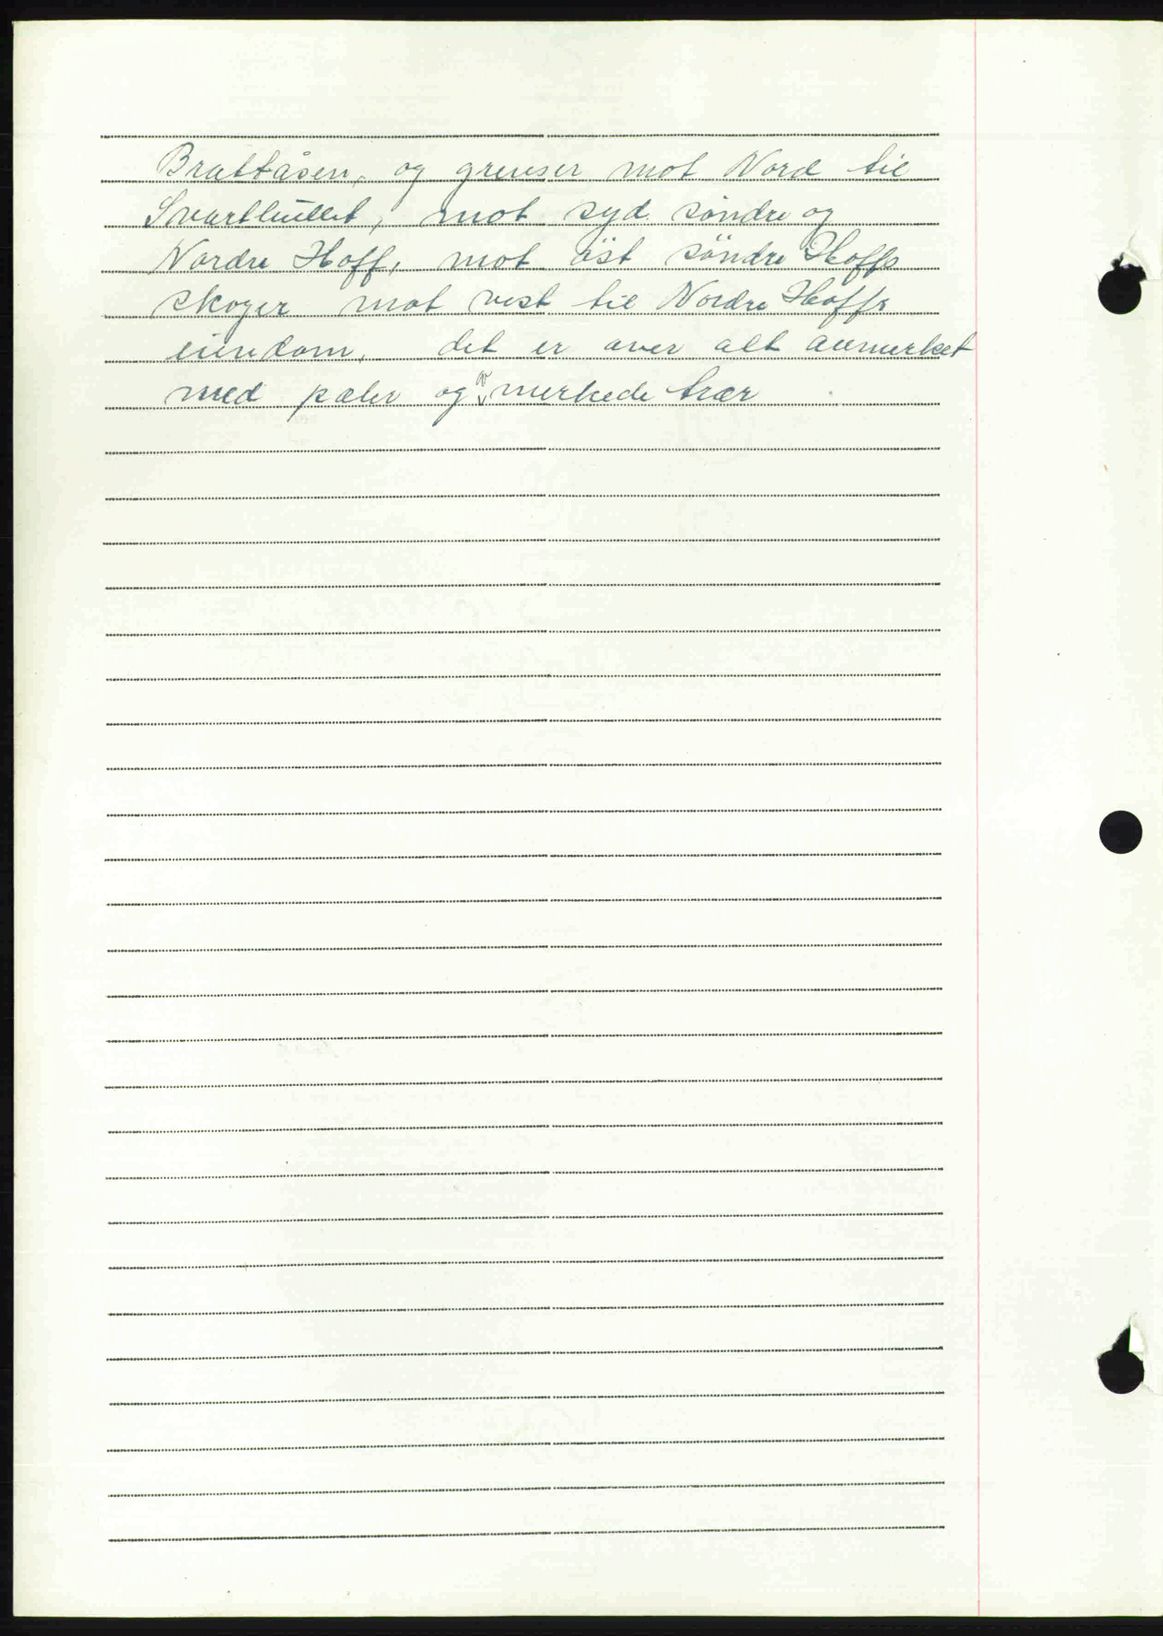 Brattåsen, og grenser mot Nord til
Svarthullet, mot syd søndre og
Nordre Hoff, mot øst søndre Hoffs
skoger mot vest til Nordre Hoffs
eiendom, det er over alt anmerket
med pæler og merkede trær